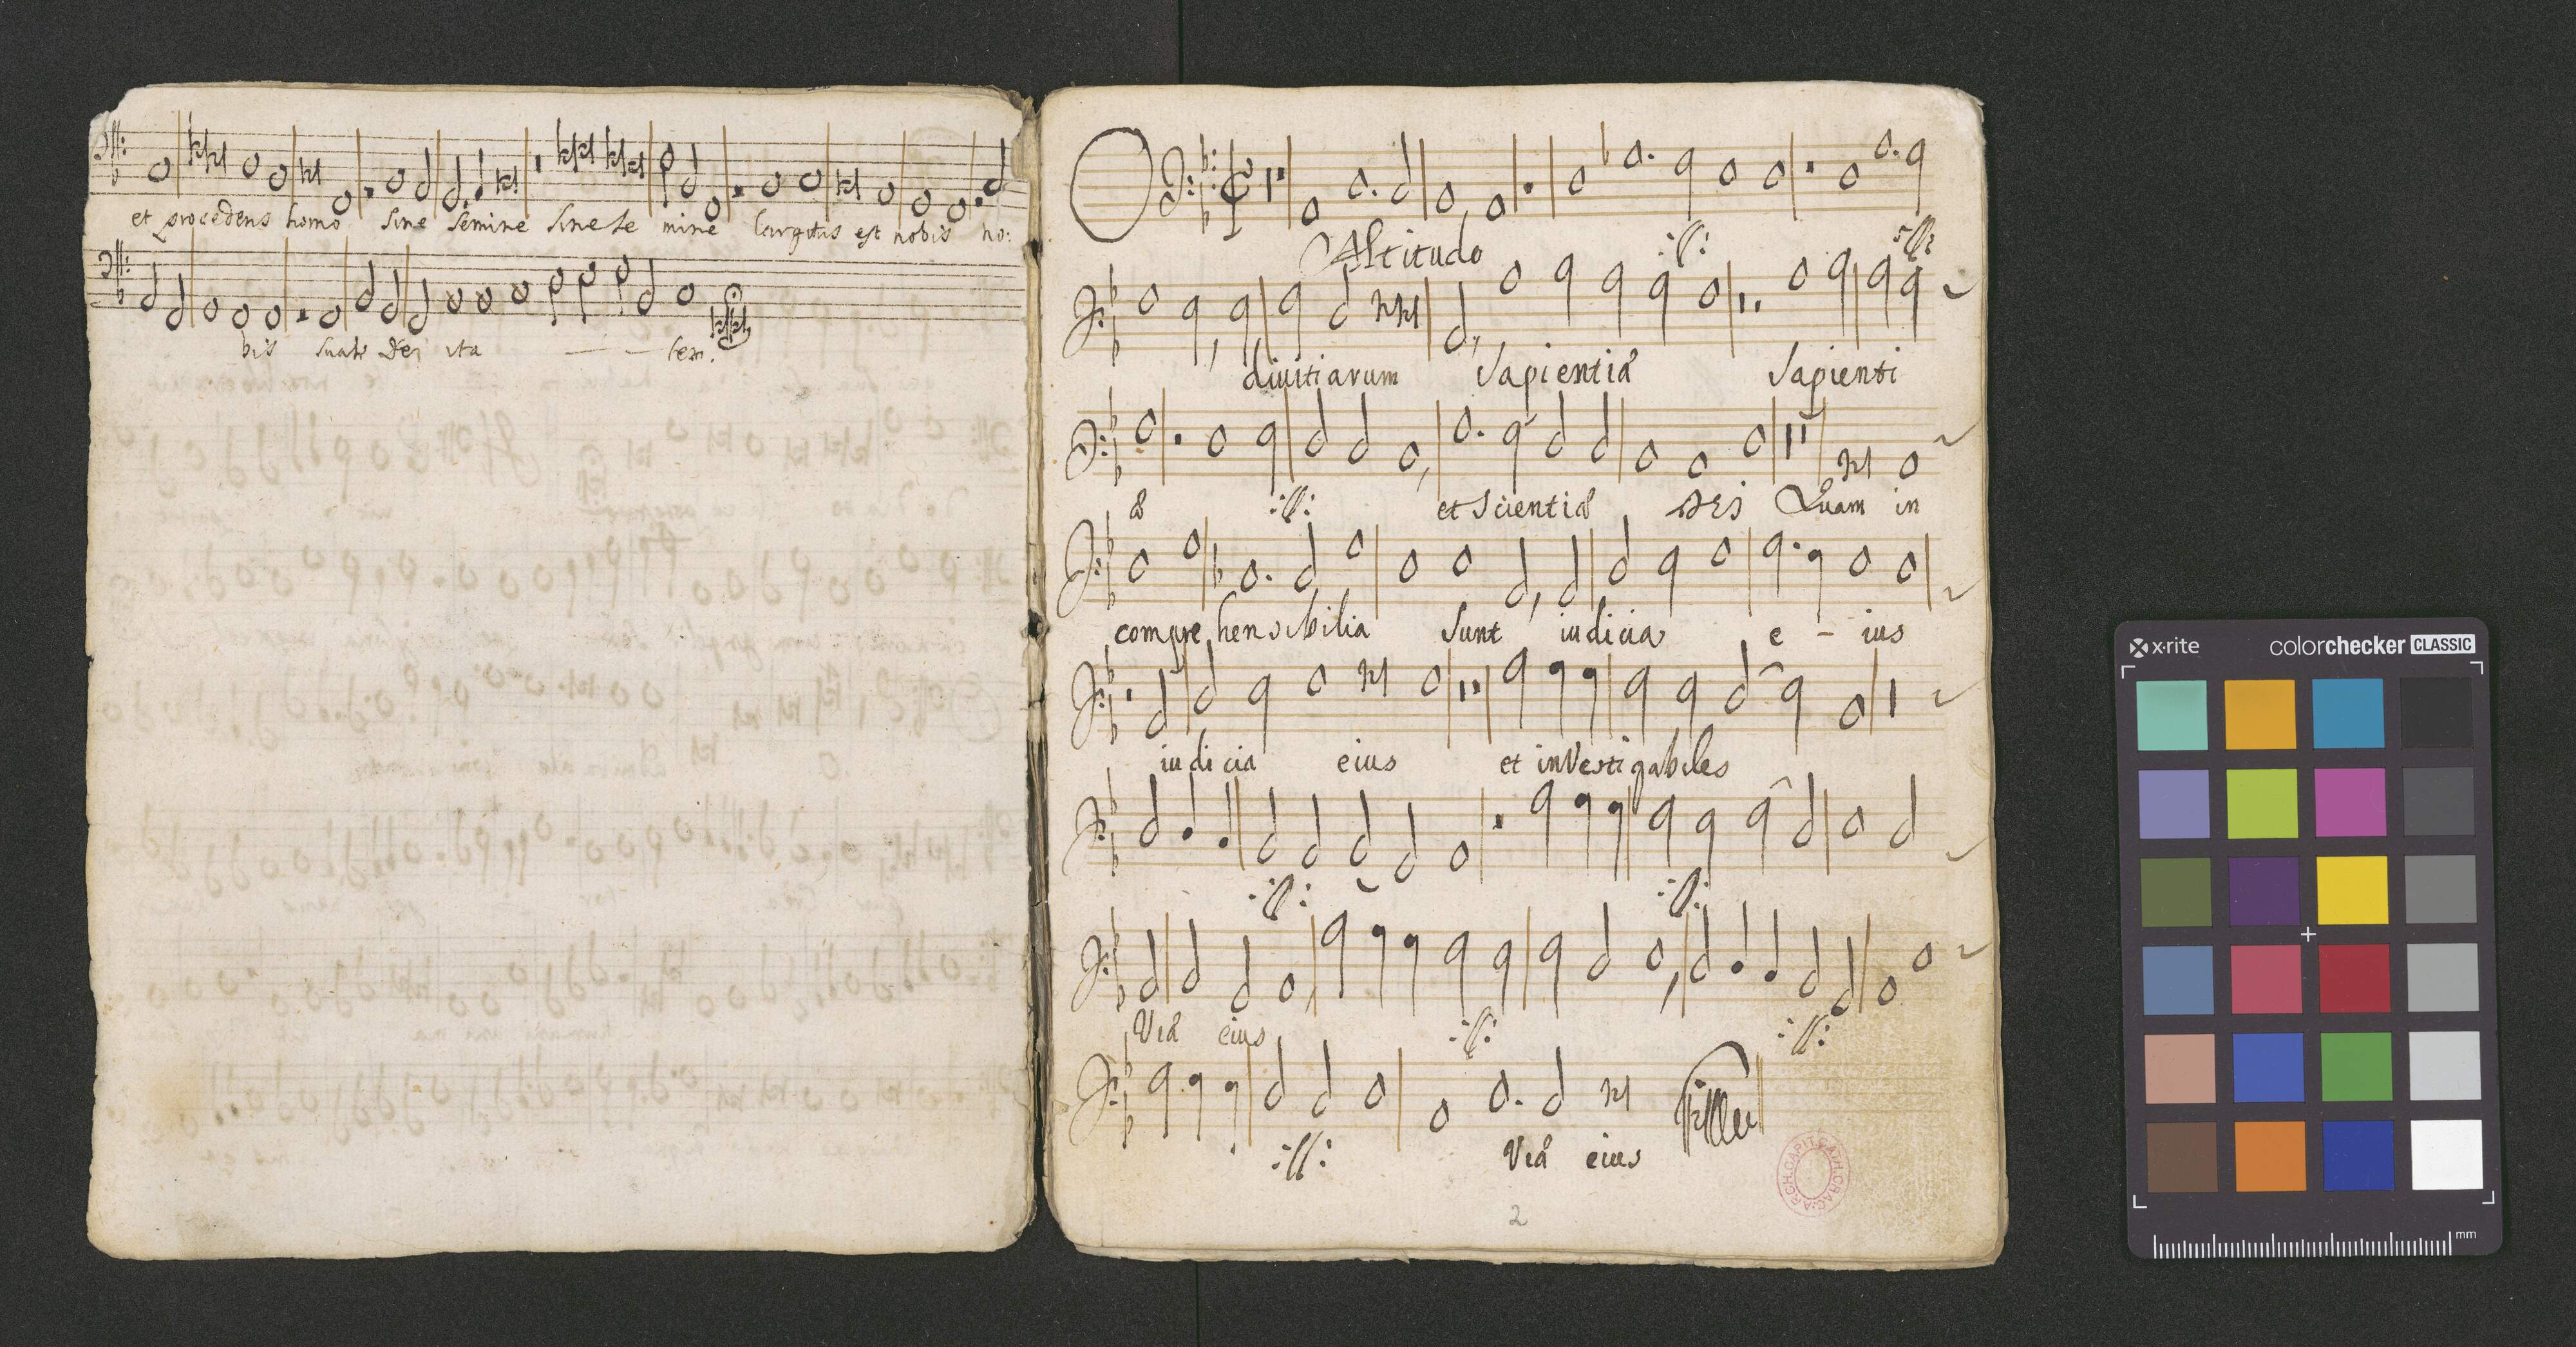 et procedens homo sine semine sine se mine largitus est nobis no:
bis suam Dei ita — — tem.
O Altitudo :||: :||:
divitiarum Sapientiæ Sapienti
æ :||: et Scientiæ DEI Quam in
compre hensibilia Sunt iudicia e - ius
iudicia eius et investigabiles
:||: :||:
Viæ eius :||: :||:
:||: Viæ eius
2
ARCH. CAPIT. CATH. CRAC.
x·rite colorchecker CLASSIC
mm